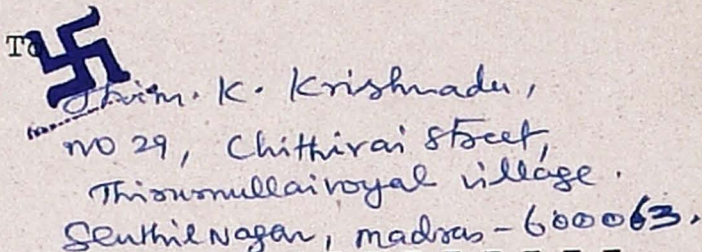 To
Thim. K. Krishnadu,
NO 29, Chithirai Street,
Thirumullaivoyal village.
Senthil Nagar, madras - 600063.